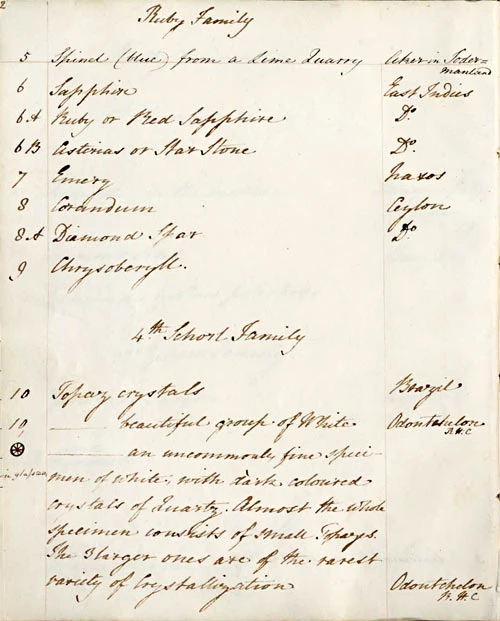 2
Ruby Family
5 Spinel (blue) from a Lime Quarry Aker in Soder=
manland
6 Sapphire East Indies
6 A Ruby or Red Sapphire Do.
6 B Asterias or Star Stone Do.
7 Emery Naxos
8 Corandum Ceylon
8 A Diamond Spar Do
9 Chrysoberyll.
4th Schorl Family
10 Topaz crystals Brazil
10 —— beautiful group of White Odontchelon
R.H.C
—— an uncommonly fine speci-
in glass case
men of white, with dark coloured
crystals of Quartz. Almost the whole
specimen consists of small Topazes.
The 3 larger ones are of the rarest
variety of Crystallization Odontchelon
R.H.C